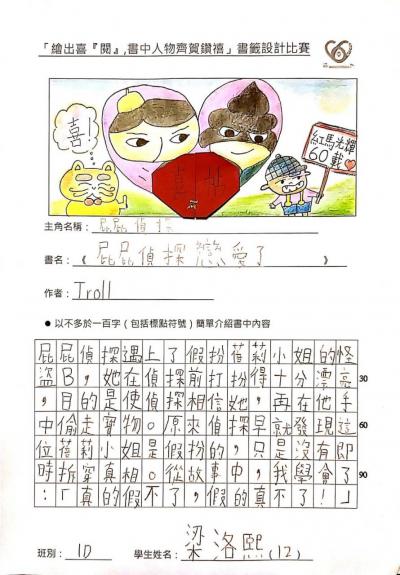 「繪出喜『閱』,書中人物齊賀鑽禧」書籤設計比賽
喜!
紅馬光耀
60載
主角名稱：屁屁偵探
書名：《屁屁偵探戀愛了》
作者：Troll
● 以不多於一百字（包括標點符號）簡單介紹書中內容
屁屁偵探遇上了假扮蓓莉小姐的怪
盜B，她在偵探前打扮得十分漂亮 30
，目的是使偵探相信她，再在他手
中偷走寶物。原來偵探早就發現這 60
位蓓莉小姐是假扮的，只是沒有即
時拆穿真相。從故事中，我學會了 90
：「真的假不了，假的真不了！」
班別：1D 學生姓名：梁洛熙(12)